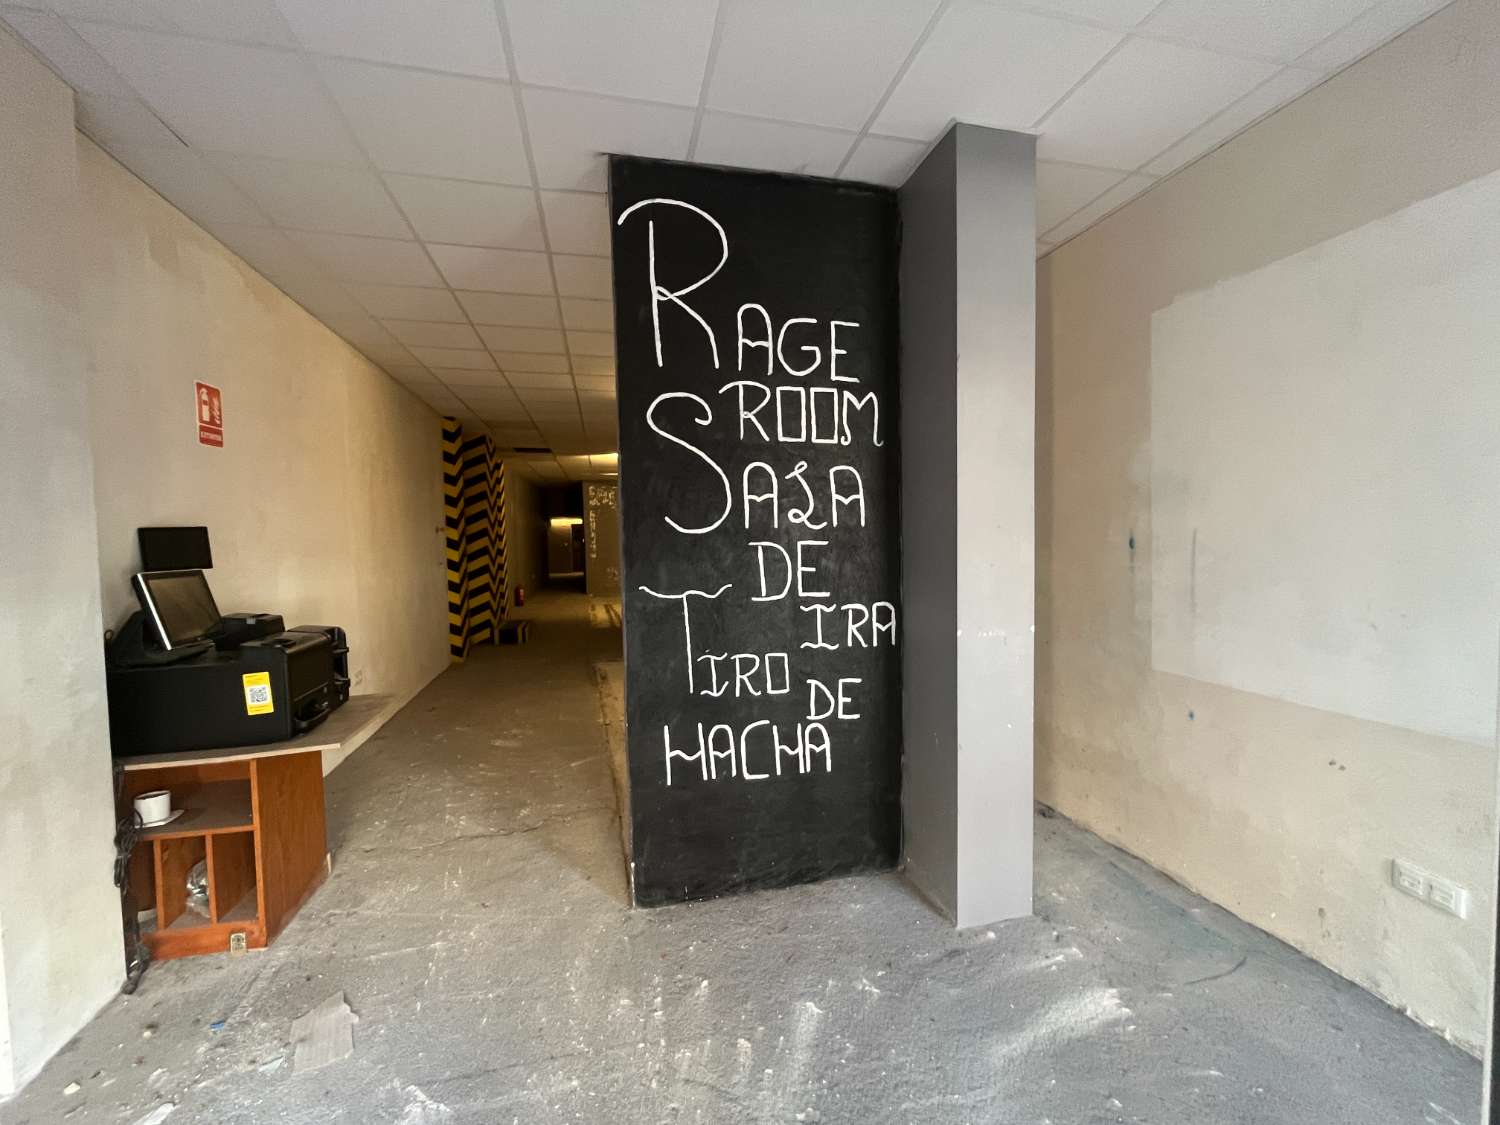 RAGE
ROOM
SALA
DE
IRA
TIRO
DE
HACHA